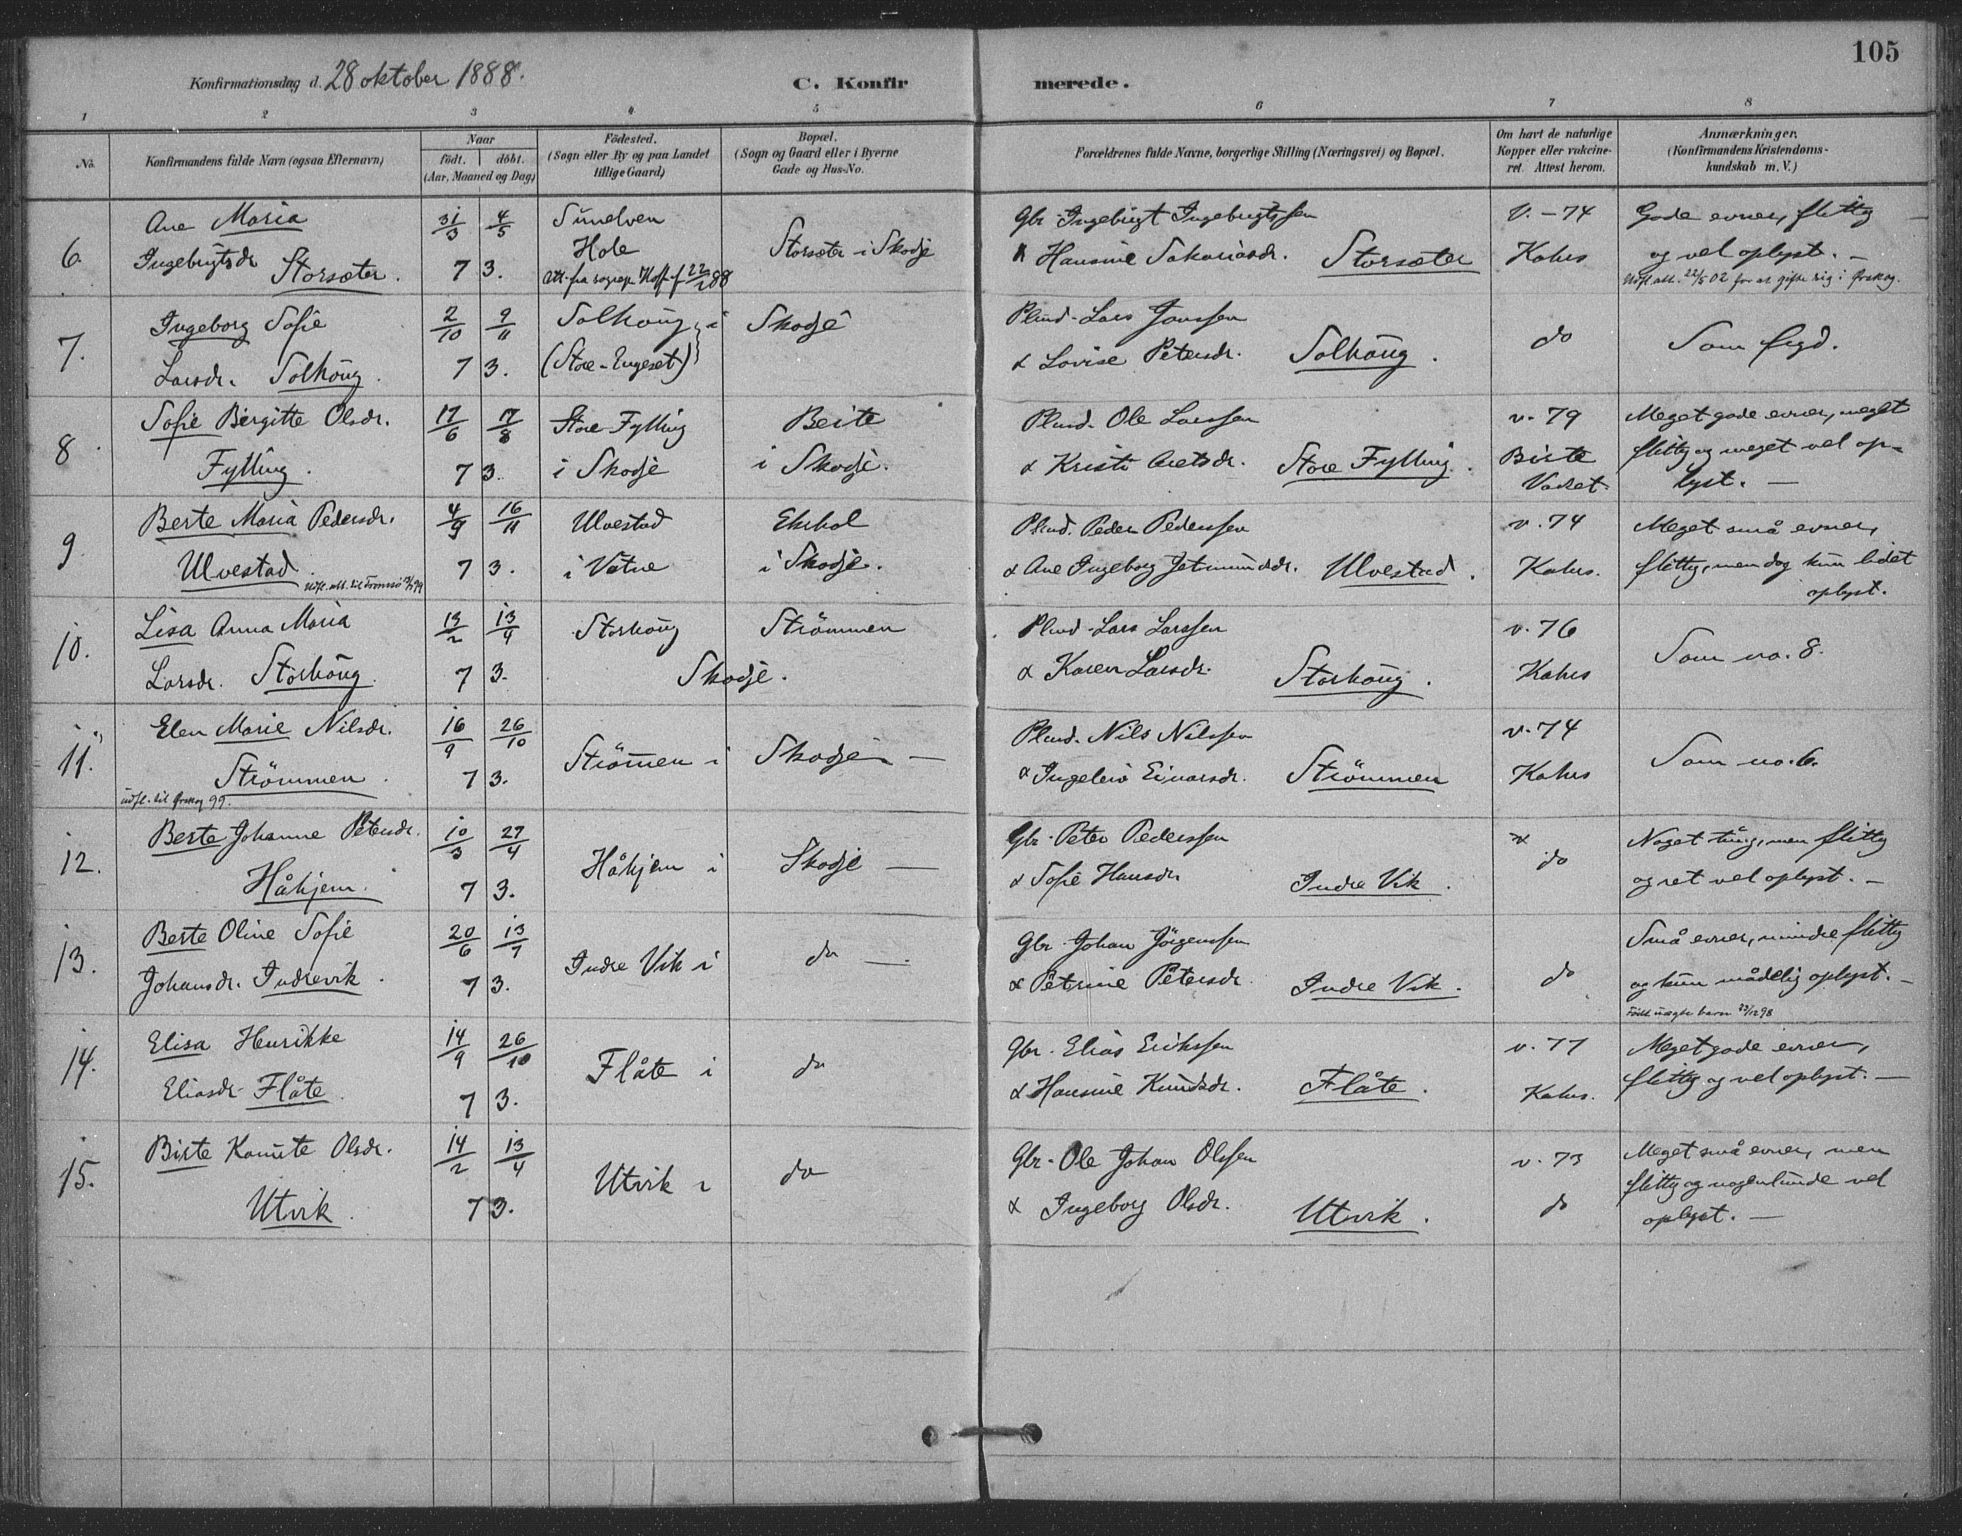 105
Konfirmationsdag d. 28 oktober 1888. C. Konfirmerede.
1 2 3 4 5 6 7 8
No. Konfirmandens fulde Navn (ogsaa Efternavn) Naar født. døbt. (Aar, Maaned og Dag) Fødested. (Sogn eller By og paa Landet tillige Gaard) Bopæl. (Sogn og Gaard eller i Byerne Gade og Hus-No. Forældrenes fulde Navne, borgerlige Stilling (Næringsvei) og Bopæl. Om havt de naturlige Kopper eller vakcineret. Attest herom. Anmærkninger. (Konfirmandens Kristendomskundskab m. V.)
6. Ane Maria 31/3 4/5 Sunelven Gbr. Ingebrigt Ingebrigtssen V. - 74 Gode evner, flittig
Ingebrigtsdr Storsæter. 73. Hole Storsæter i Skodje & Hansine Sakariasdr. Storsæter Kahrs og vel oplyst. -
att. fra sognepr. 88 Udfl. att. 22/5 02 for at gifte sig i Ørskog.
7. Ingeborg Sofie 2/10 9/11 Solhoug i Skodje Plmd. Lars Jonssen do Som fegd.
Larsdr. Solhoug. 73. (Store-Engeset) & Lovise Petersdr. Solhoug.
8. Sofie Birgitte Olsdr. 17/6 17/8 Store Fylling Beite Plmd. Ole Larssen v. 79 Meget gode evner, meget
Fylling. 73. i Skodje i Skodje. & Kristi Store Fylling. Birte flittig og meget vel op-
lyst. -
9. Berte Maria Pedersdr. 4/9 16/11 Ulvestad Ekrhol Plmd. Peder Pederssen v. 74 Meget små evner,
Ulvestad. 73. i Vatne i Skodje. & Ane Ingeborg Jetmundsdr. Ulvestad. Kahrs. flittig, men dog kun lidet
Udfl. att. til Tromsø 99 oplyst.
10. Lisa Anna Maria 13/2 13/4 Storhoug Strømmen Plmd. Lars Larssen v. 76 Som no. 8.
Larsdr. Storhoug. 73. Skodje. & Karen Larsdr. Storhoug. Kahrs
11. Elen Marie Nilsdr. 16/9 26/10 Strømen i Skodje - Plmd. Nils Nilssen v. 74 Som no. 6.
Strømmen. 73. & Ingeleiv Einarsdr. Strømmen Kahrs
udfl. til Ørskog 99.
12. Berte Johanne Petersdr. 10/3 27/4 Håhjem i Skodje - Gbr. Peter Pederssen do Noget tung, men flittig
Håhjem. 73. & Sofie Hansdr Indre Vik. og ret vel oplyst. -
13. Berte Oline Sofie 20/6 13/7 Indre Vik i do -. Gbr. Johan Jørgenssen do Små evner, mindre flittig
Johansdr. Indrevik. 73. & Petrine Petersdr. Indre Vik. og kun mådelig oplyst. -
Født uægte barn 23/12 98
14. Elisa Henrikke 14/9 26/10 Flåte i do Gbr. Elias Erikssen v. 77 Meget gode evner,
Eliasdr. Flåte. 73. & Hansine Knudsdr. Flåte. Kahrs. flittig og vel oplyst. -
15. Birte Kanute Olsdr. 14/2 13/4 Utvik i do Gbr. Ole Johan Olssen v. 73 Meget små evner, men
Utvik. 73. & Ingeborg Olsdr. Utvik. do flittig og nogenlunde vel
oplyst. -